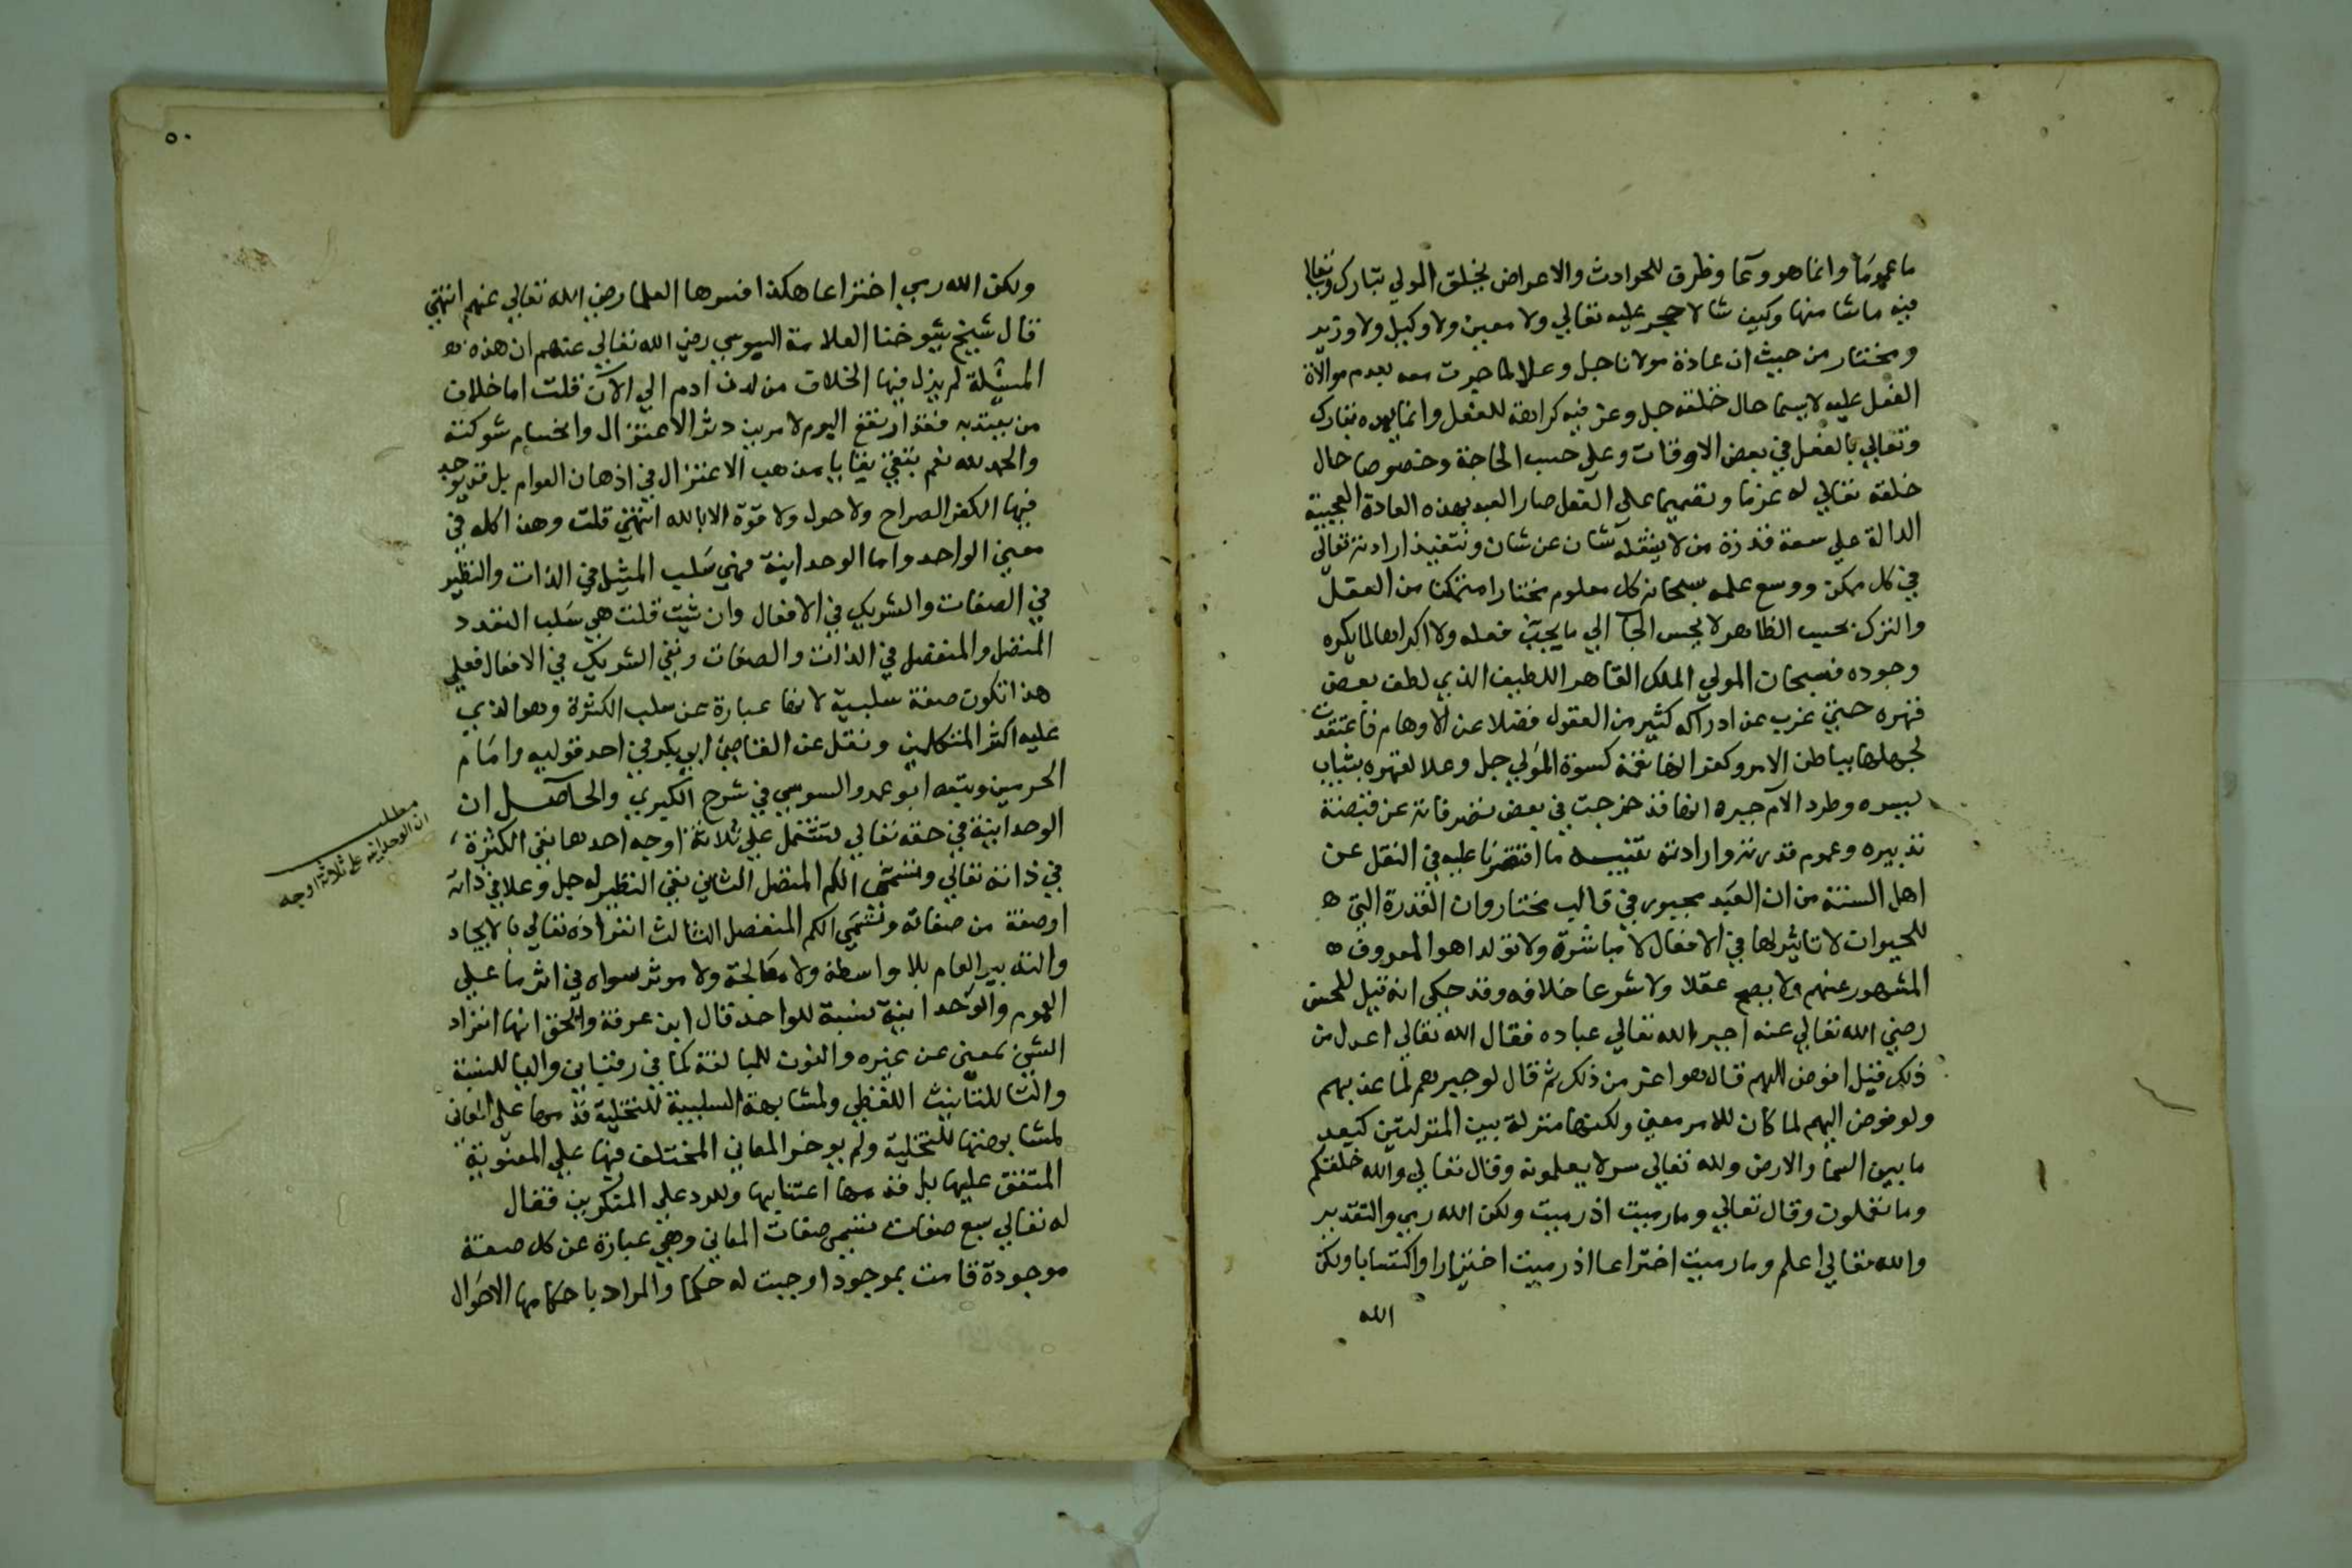 ما عموما وانما هو وعا وظرف للحوادث والاعراض يخلق المولي تبارك وتعالي
فيه ماشا منها وكيف شا لا حجر عليه تعالي ولا معين ولا وكيل ولا وزير
ومختار من حيث ان عادة مولانا جل وعلا لما جرت معه بعدم موالاة
الفعل عليه لاسيما حال خلقه جل وعز فيه كراهة للفعل وانما يمده تبارك
وتعالي بالفعل في بعض الاوقات وعلي حسب الحاجة وخصوصا حال
خلقه تعالي له عزما وتصميما علي الفعل صار العبد بهذه العادة العجيبة
الدالة علي سعة قدرة من لا يشغله شان عن شان وتنفيذ ارادته تعالي
في كل ممكن ووسع علمه سبحانه كل معلوم مختارا متمكنا من الفعل
والترك بحسب الظاهر لا يحس الجا الي ما يحب فعله ولا اكراها لما يكره
وجوده فسبحان المولي الملك القاهر اللطيف الذي لطف بعض
قهره حتي غرب عن ادراكه كثير من العقول فضلا عن الاوهام فاعتقدت
لجهلها بباطن الامر وكفرانها نعمة كسوة المولي جل وعلا لقهره بثياب
يسره وطرد الام جبره انها قد خرجت في بعض تصرفاته عن قبضة
تدبيره وعموم قدرته وارادته تنبيه ما اقتصرنا عليه في النقل عن
اهل السنة من ان العبد مجبور في قالب مختار وان القدرة التي ه
للحيوان لا تاثير لها في الافعال لا مباشرة ولا تولدا هو المعروف ه
المشهور عنهم ولا يصح عقلا ولا شرعا خلافه وقد حكي انه قيل للحسن
رضي الله تعالي عنه اجبر الله تعالي عباده فقال الله تعالي اعدل من
ذلك فقيل افوض اليهم قال هو اعز من ذلك ثم قال لو جبرهم لما عذبهم
ولو فوض اليهم لما كان للامر معني ولكنها منزلة بين المنزلتين كبعد
ما بين السما والارض ولله تعالي سر لا يعلمونه وقال تعالي والله خلقكم
وما تعملون وقال تعالي وما رميت اذ رميت ولكن الله رمي والتقدير
والله تعالي اعلم وما رميت اختراعا اذ رميت اختيارا واكتسابا ولكن
الله
٥٠
ولكن الله رمي اختراعا هكذا فسرها العلما رضي الله تعالي عنهم انتهي
قال شيخ شيوخنا العلامة اليوسي رضي الله تعالي عنهم ان هذه
المسئلة لم يزل فيها الخلاف من لدن ادم الي الان قلت اما خلاف
من يعتد به فقد ارتفع اليوم لا مرين دثر الاعتزال وانحسام شوكته
والحمد لله نعم بقي بقايا من مذهب الاعتزال في اذهان العوام بل قد يوجد
فيها الكفر الصراح ولا حول ولا قوة الا بالله انتهي قلت وهذا كله في
معني الواحد واما الوحدانية فهي سلب المثيل في الذات والنظير
في الصفات والشريك في الافعال وان شيت قلت هي سلب التعدد
المتصل والمنفصل في الذات والصفات ونفي الشريك في الافعال فعلي
هذا تكون صفة سلبية لانها عبارة عن سلب الكثرة وهو الذي
عليه اكثر المتكلمين ونقل عن القاضي ابي بكر في احد قوليه وامام
الحرمين وتبعه ابو عمرو السوسي في شرح الكبري والحاصل ان
الوحدانية في حقه تعالي تشتمل علي ثلاثة اوجه احدها نفي الكثرة
في ذاته تعالي وتسمي الكم المتصل الثاني نفي النظير له جل وعلا في ذاته
او صفة من صفاته وتسمي الكم المنفصل الثالث انفراده تعالي بالايجاد
والتدبير العام بلا واسطة ولا معالجة ولا موثر سواه في اثر ما علي
العموم والوحدانية نسبة للواحد قال ابن عرفة والحق انها انفراد
الشي بمعني عن غيره والنون للمبالغة كما في رقباني واليا للنسبة
والتا للتانيث اللفظي ولمشابهة السلبية للتخلية قدمها علي المعاني
لمشابهتها للتخلية ولم يوخر المعاني المختلف فيها علي المعنوية
المتفق عليها بل قدمها اعتنا بها وللرد علي المنكرين فقال
له تعالي سبع صفات تسمي صفات المعاني وهي عبارة عن كل صفة
موجودة قامت بموجود اوجبت له حكما والمراد باحكامها الاحوال
مطلب
ان الوحدانية علي ثلاثة اوجه